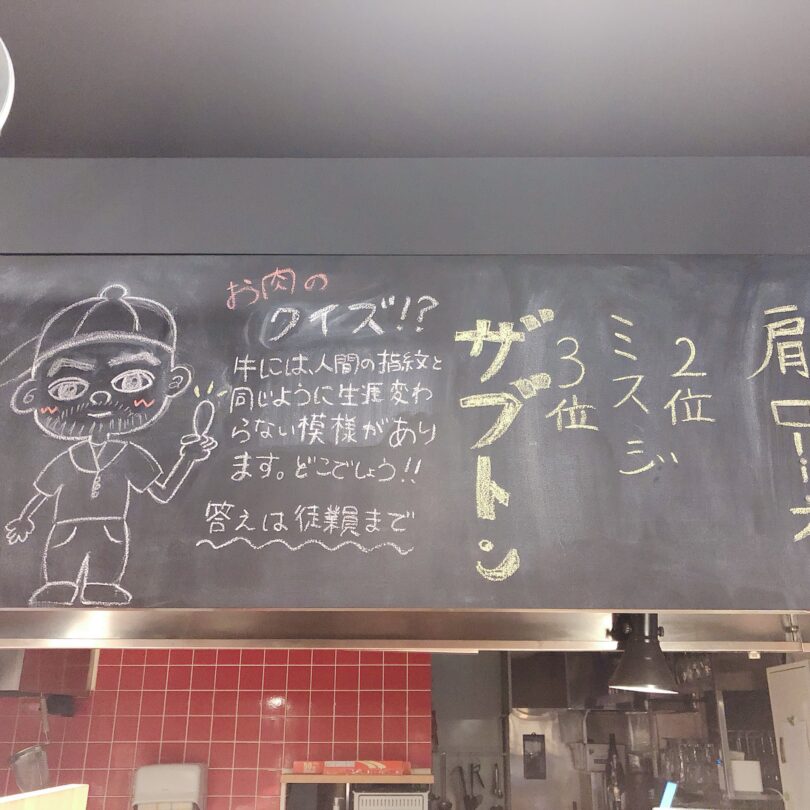 お肉の
クイズ!?
牛には、人間の指紋と
同じように生涯変わ
らない模様があり
ます。どこでしょう!!
答えは従業員まで
肩ロース
2位
ミスジ
3位
ザブトン